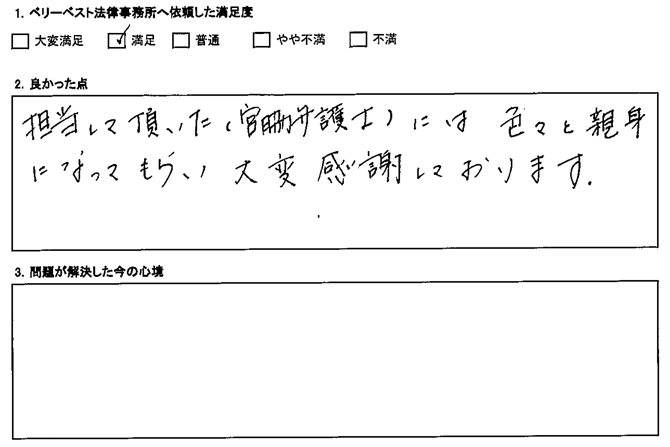 1. ベリーベスト法律事務所へ依頼した満足度
大変満足 満足 普通 やや不満 不満
2. 良かった点
担当して頂いた(宮﨑弁護士)には 色々と親身
になってもらい 大変 感謝しております.
3. 問題が解決した今の心境